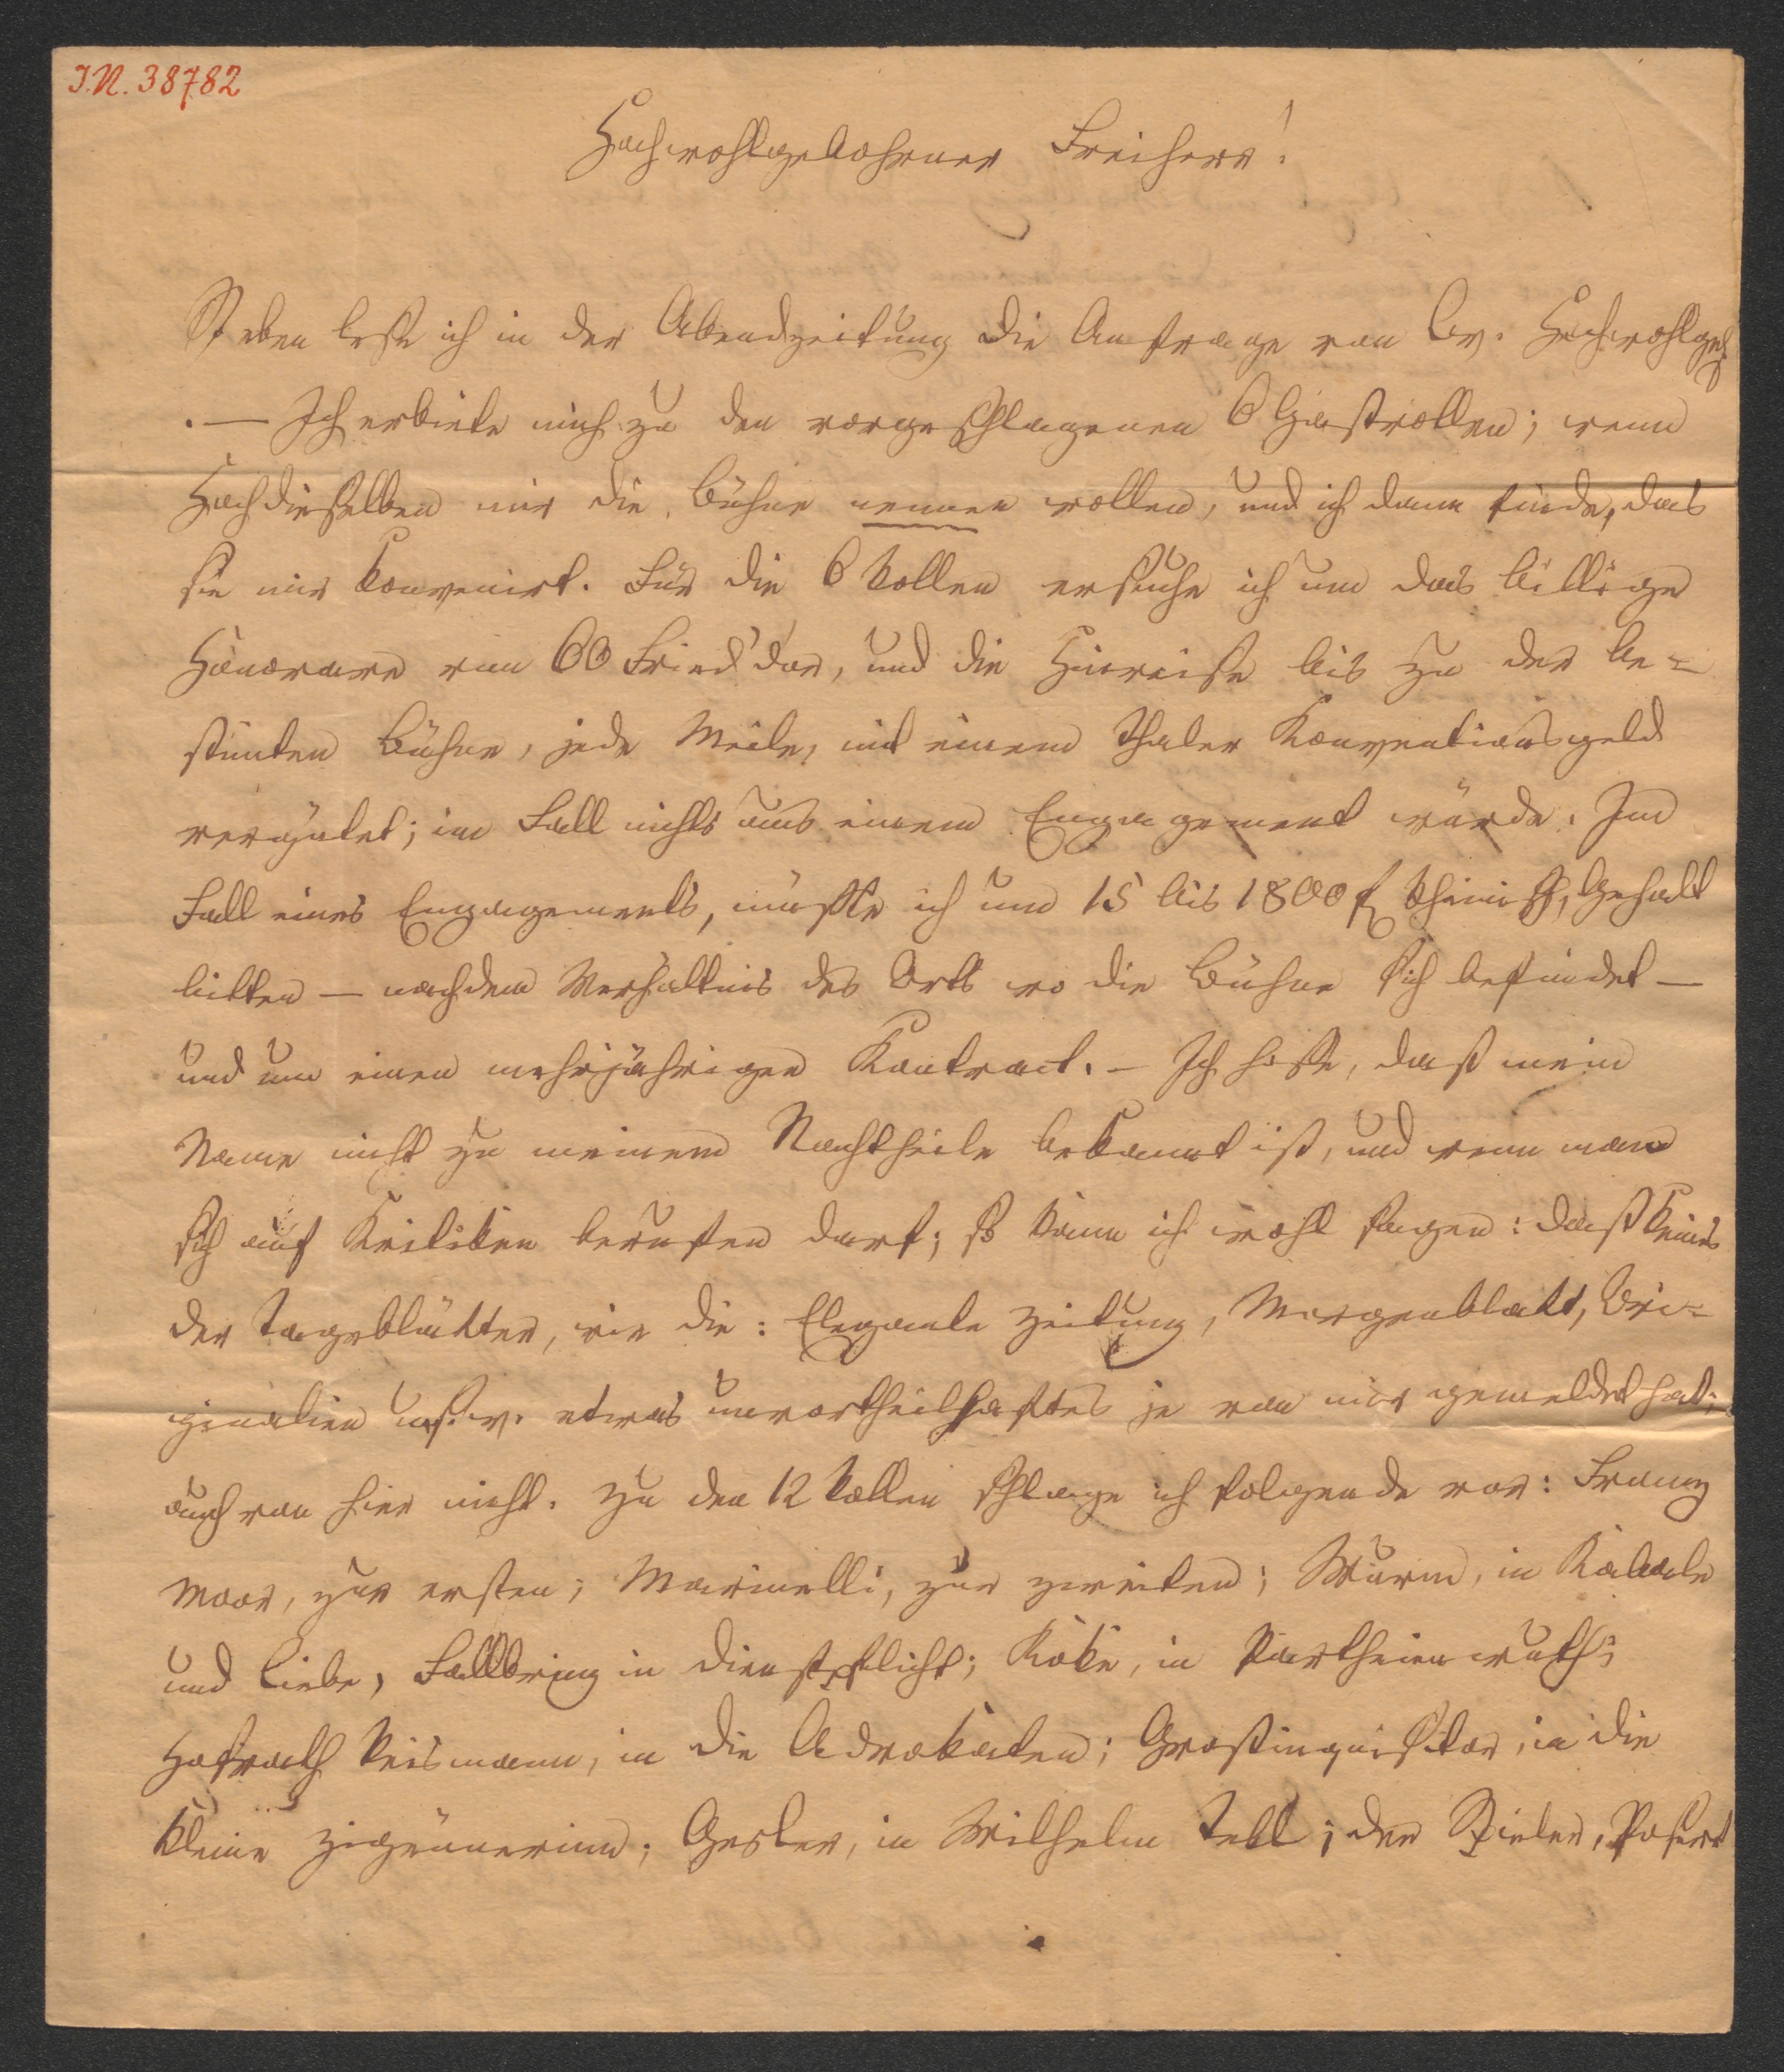 I.N. 38782
Hochwohlgebohrner Freiherr!
So eben lese ich in der Abendzeitung die Anfrage von Ew. Hochwohlgeb
. — Ich erbiete mich zu den vorgeschlagenen 6 Gastrollen; wenn
Hochdieselben mir die Bühne nennen wollen, und ich dann finde, das
sie mir konvenirt. Für die 6 Rollen ersuche ich um das billige
Honorare von 60 Fried'dor, und die Hinreise bis zu der be=
stimten Bühne, jede Meile, mit einem Thaler Konventionsgeld
vergütet; im Fall nichts aus einem Engagement würde. Im
Fall eines Engagements, müßte ich um 15 bis 1800 f Rheinisch, Gehalt
bitten — nach dem Verhältnis des Orts wo die Bühne sich befindet —
und um einen mehrjährigen Kontract. — Ich hoffe, daß mein
Name nicht zu meinem Nachtheile bekannt ist, und wenn man
sich auf Kritiken berufen darf; so kann ich wohl sagen: daß keines
der Tageblätter, wie die: Elegante Zeitung, Morgenblatt, Ori=
ginalien u.s.w. etwas unvortheilhaftes je von mir gemeldet hat;
auch von hier nicht. Zu den 12 Rollen schlage ich folgende vor: Franz
Moor, zur ersten; Marinelli, zur zweiten; Wurm, in Kabale
und Liebe; Fallbring in Dienstpflicht; Koke, in Partheienwuth;
Hofrath Reismann, in die Advokaten; Grosinquisitor, in die
kleine Zigeunerinn; Gesler, in Wilhelm Tell; der Spieler, Posert